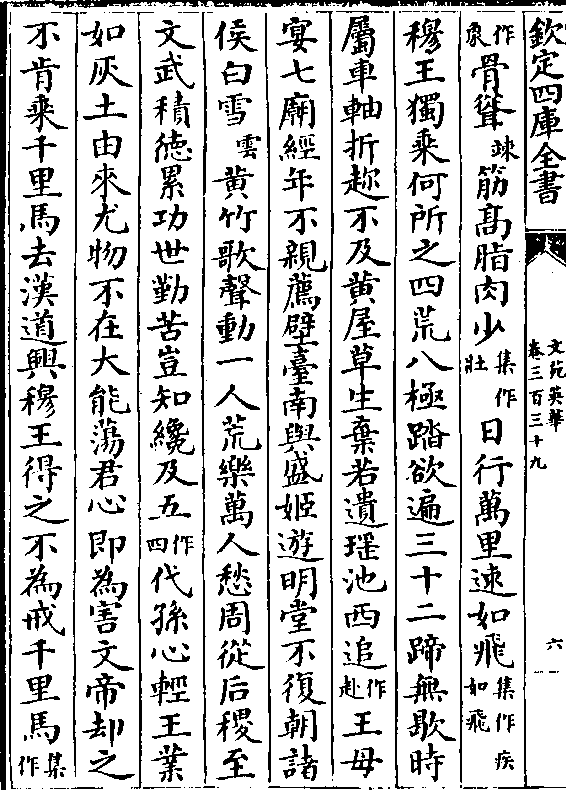 欽定四庫全書
文苑英華
卷三百三十九
六
作象骨聳竦筋髙脂肉少集作壯日行萬里速如飛集作疾如飛
穆王獨乗何所之四荒八極踏欲遍三十二蹄無歇時
屬車軸折趂不及黄屋草生棄若遺瑶池西追作赴王母
宴七廟經年不親薦壁臺南與盛姬遊明堂不復朝諸
侯白雪雲黄竹歌聲動一人荒樂萬人愁周從后稷至
文武積徳累功世勤苦豈知纔及五作四代孫心輕王業
如灰土由來尤物不在大能蕩君心即為害文帝却之
不肯乗千里馬去漢道興穆王得之不為戒千里馬集作